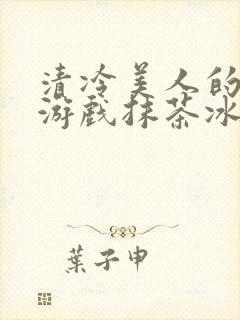 清冷美人的
游戏抹茶冰
葉子申